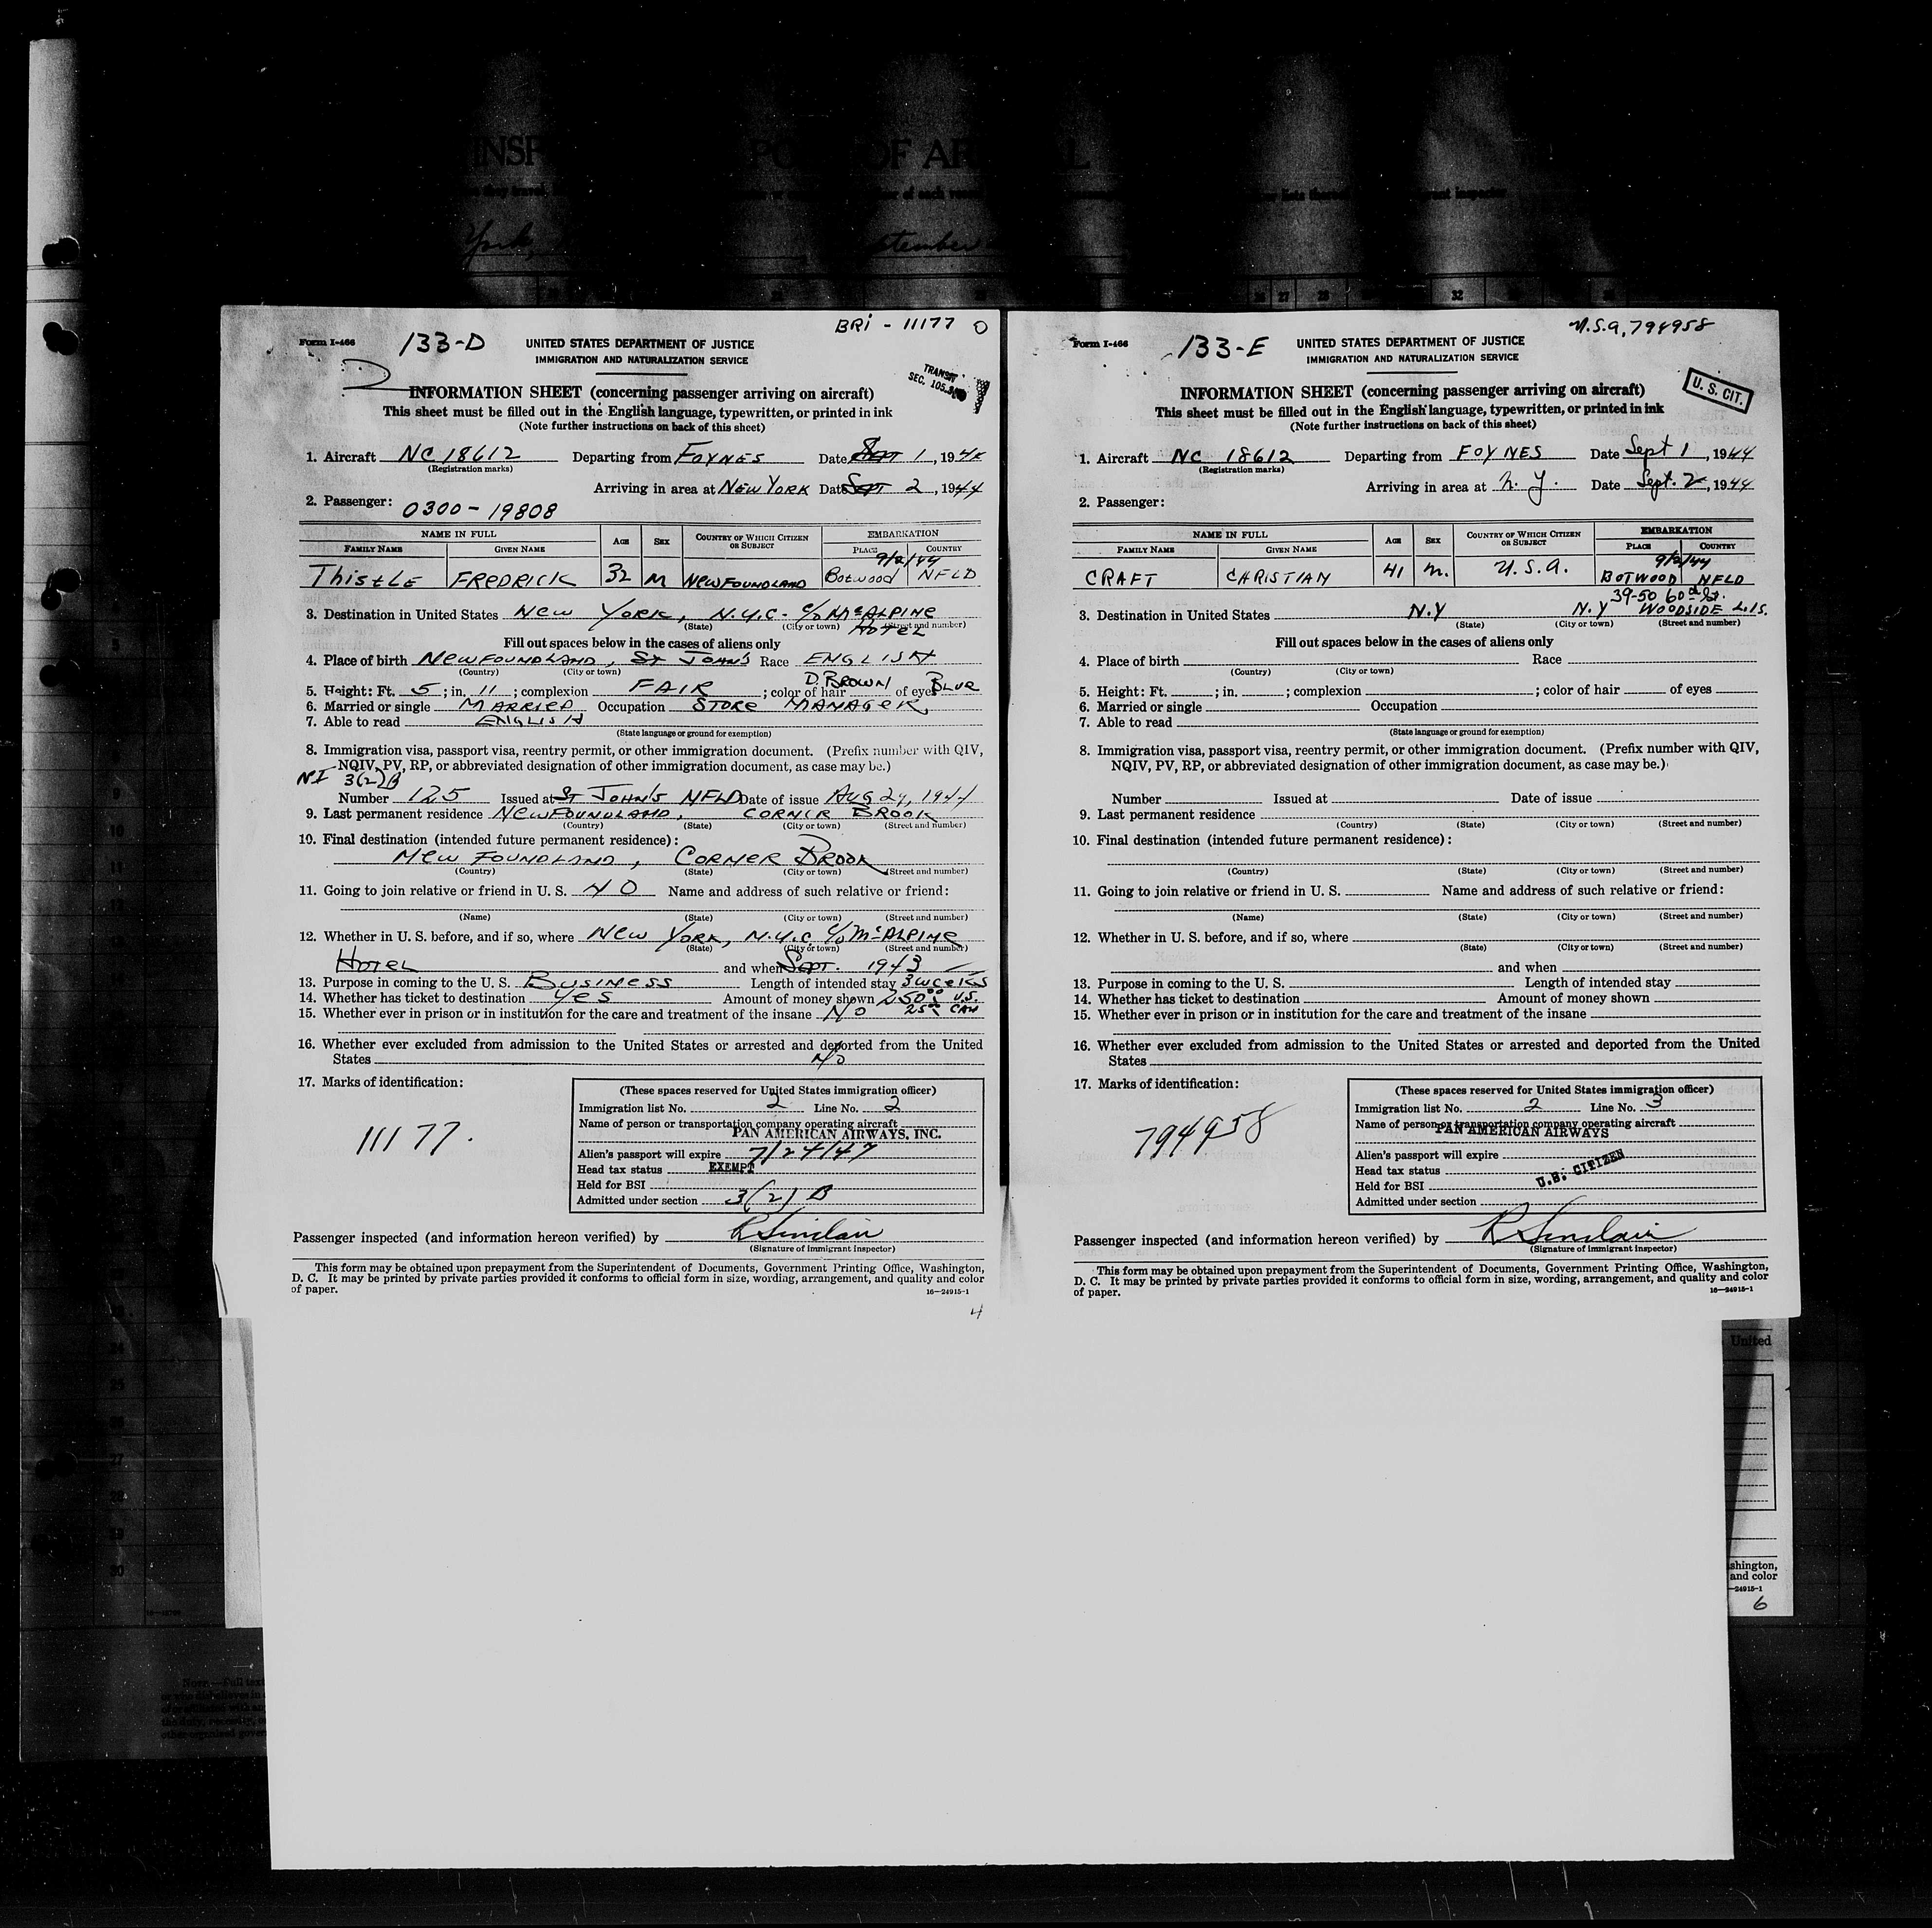 BRI - 11177
Form I-466
133-D
UNITED STATES DEPARTMENT OF JUSTICE
IMMIGRATION AND NATURALIZATION SERVICE
TRANSIT
SEC. 105.3
INFORMATION SHEET (concerning passenger arriving on aircraft)
This sheet must be filled out in the English language, typewritten, or printed in ink
(Note further instructions on back of this sheet)
1. Aircraft NC 18612 Departing from FOYNES Date SEPT 1, 1944
(Registration marks)
Arriving in area at NEW YORK Date SEPT 2, 1944
2. Passenger: 0300-19808
NAME IN FULL AGE SEX COUNTRY OF WHICH CITIZEN OR SUBJECT EMBARKATION
FAMILY NAME GIVEN NAME PLACE COUNTRY
9/2/44
THISTLE FREDRICK 32 M NEWFOUNDLAND BOTWOOD NFLD
3. Destination in United States NEW YORK, N.Y.C. c/o McALPINE
(State) (City or town) (Street and number)
HOTEL
Fill out spaces below in the cases of aliens only
4. Place of birth NEWFOUNDLAND, ST JOHN'S Race ENGLISH
(Country) (City or town)
5. Height: Ft. 5; in. 11; complexion FAIR; color of hair D. BROWN of eyes BLUE
6. Married or single MARRIED Occupation STORE MANAGER
7. Able to read ENGLISH
(State language or ground for exemption)
8. Immigration visa, passport visa, reentry permit, or other immigration document. (Prefix number with QIV,
NQIV, PV, RP, or abbreviated designation of other immigration document, as case may be.)
NI 3(2)B
Number 125 Issued at ST JOHN'S NFLD Date of issue AUG 24, 1944
9. Last permanent residence NEWFOUNDLAND, CORNER BROOK
(Country) (State) (City or town) (Street and number)
10. Final destination (intended future permanent residence):
NEWFOUNDLAND, CORNER BROOK
(Country) (State) (City or town) (Street and number)
11. Going to join relative or friend in U. S. NO Name and address of such relative or friend:
(Name) (State) (City or town) (Street and number)
12. Whether in U. S. before, and if so, where NEW YORK, N.Y.C. c/o McALPINE
(State) (City or town) (Street and number)
HOTEL and when SEPT. 1943
13. Purpose in coming to the U. S. BUSINESS Length of intended stay 3 WEEKS
14. Whether has ticket to destination YES Amount of money shown 250.00 U.S.
25.00 CAN
15. Whether ever in prison or in institution for the care and treatment of the insane NO
16. Whether ever excluded from admission to the United States or arrested and deported from the United
States NO
17. Marks of identification:
11177.
(These spaces reserved for United States immigration officer)
Immigration list No. 2 Line No. 2
Name of person or transportation company operating aircraft
PAN AMERICAN AIRWAYS, INC.
Alien's passport will expire 7/24/47
Head tax status EXEMPT
Held for BSI
Admitted under section 3(2) B
Passenger inspected (and information hereon verified) by R Sinclair
(Signature of immigrant inspector)
This form may be obtained upon prepayment from the Superintendent of Documents, Government Printing Office, Washington,
D. C. It may be printed by private parties provided it conforms to official form in size, wording, arrangement, and quality and color
of paper.
16—24915-1
4
U.S.A. 794958
Form I-466
133-E
UNITED STATES DEPARTMENT OF JUSTICE
IMMIGRATION AND NATURALIZATION SERVICE
U. S. CIT.
INFORMATION SHEET (concerning passenger arriving on aircraft)
This sheet must be filled out in the English language, typewritten, or printed in ink
(Note further instructions on back of this sheet)
1. Aircraft NC 18612 Departing from FOYNES Date Sept 1, 1944
(Registration marks)
Arriving in area at N.Y. Date Sept. 2, 1944
2. Passenger:
NAME IN FULL AGE SEX COUNTRY OF WHICH CITIZEN OR SUBJECT EMBARKATION
FAMILY NAME GIVEN NAME PLACE COUNTRY
9/2/44
CRAFT CHRISTIAN 41 M. U.S.A. BOTWOOD NFLD
39-50 60th St.
3. Destination in United States N.Y N.Y WOODSIDE L.I.
(State) (City or town) (Street and number)
Fill out spaces below in the cases of aliens only
4. Place of birth Race
(Country) (City or town)
5. Height: Ft. ; in. ; complexion ; color of hair of eyes
6. Married or single Occupation
7. Able to read
(State language or ground for exemption)
8. Immigration visa, passport visa, reentry permit, or other immigration document. (Prefix number with QIV,
NQIV, PV, RP, or abbreviated designation of other immigration document, as case may be.)
Number Issued at Date of issue
9. Last permanent residence
(Country) (State) (City or town) (Street and number)
10. Final destination (intended future permanent residence):
(Country) (State) (City or town) (Street and number)
11. Going to join relative or friend in U. S. Name and address of such relative or friend:
(Name) (State) (City or town) (Street and number)
12. Whether in U. S. before, and if so, where
(State) (City or town) (Street and number)
and when
13. Purpose in coming to the U. S. Length of intended stay
14. Whether has ticket to destination Amount of money shown
15. Whether ever in prison or in institution for the care and treatment of the insane
16. Whether ever excluded from admission to the United States or arrested and deported from the United
States
17. Marks of identification:
794958
(These spaces reserved for United States immigration officer)
Immigration list No. 2 Line No. 3
Name of person or transportation company operating aircraft
PAN AMERICAN AIRWAYS
Alien's passport will expire
Head tax status
Held for BSI U.S. CITIZEN
Admitted under section
Passenger inspected (and information hereon verified) by R Sinclair
(Signature of immigrant inspector)
This form may be obtained upon prepayment from the Superintendent of Documents, Government Printing Office, Washington,
D. C. It may be printed by private parties provided it conforms to official form in size, wording, arrangement, and quality and color
of paper.
16—24915-1
United
shington,
and color
—24915-1
6